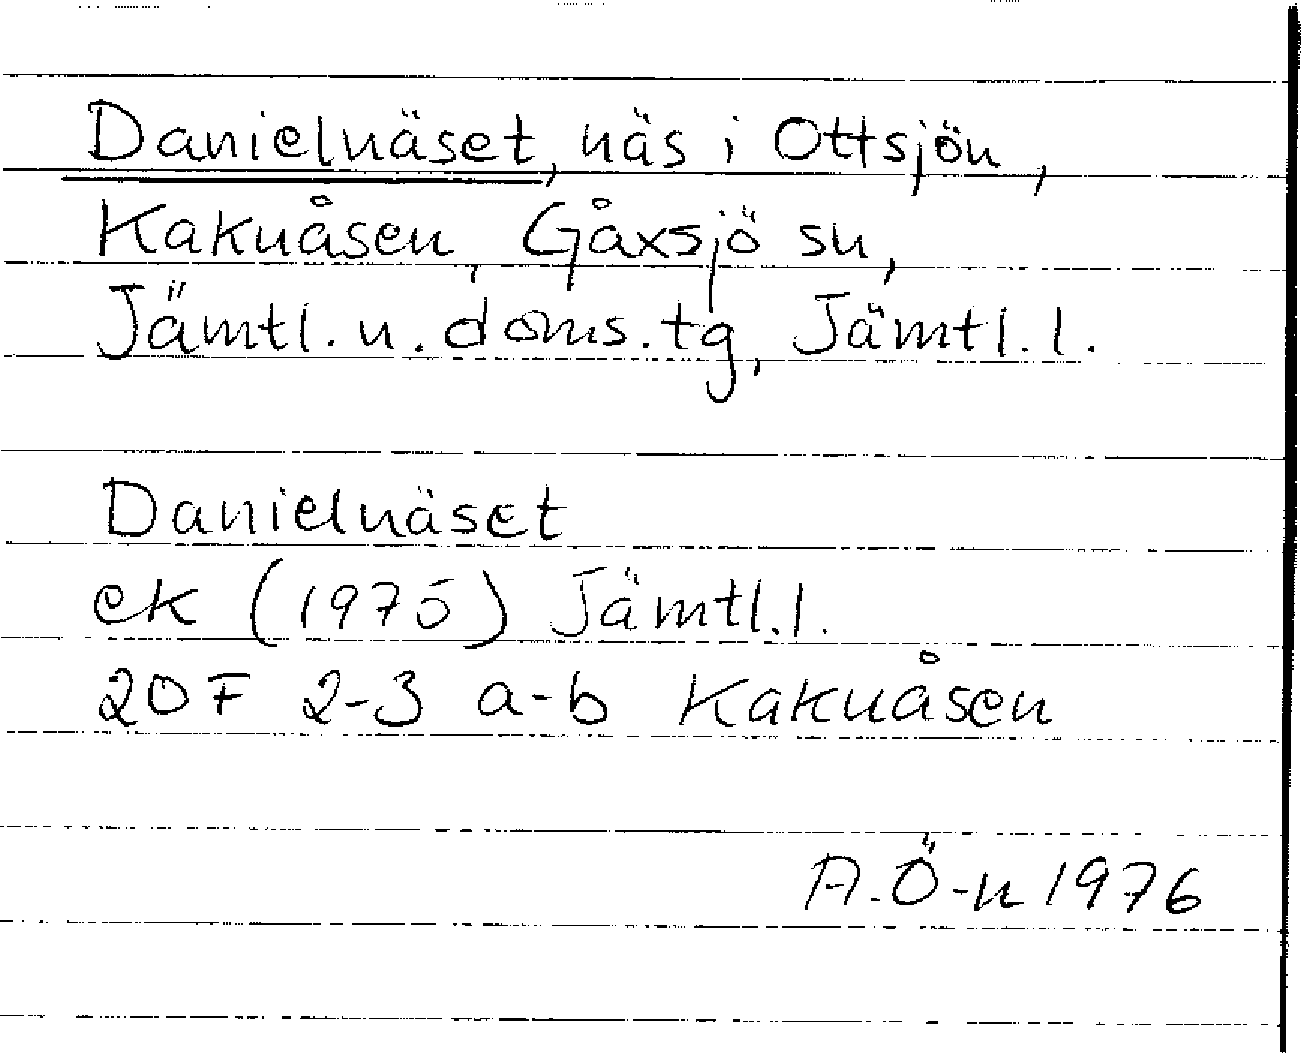 Danielnäset, näs i Ottsjön,
Kakuåsen, Gåxsjö sn,
Jämtl. n. doms. tg, Jämtl. l.
Danielnäset
ek (1975) Jämtl. l.
20F 2-3 a-b Kakuåsen
A. Ö-n 1976